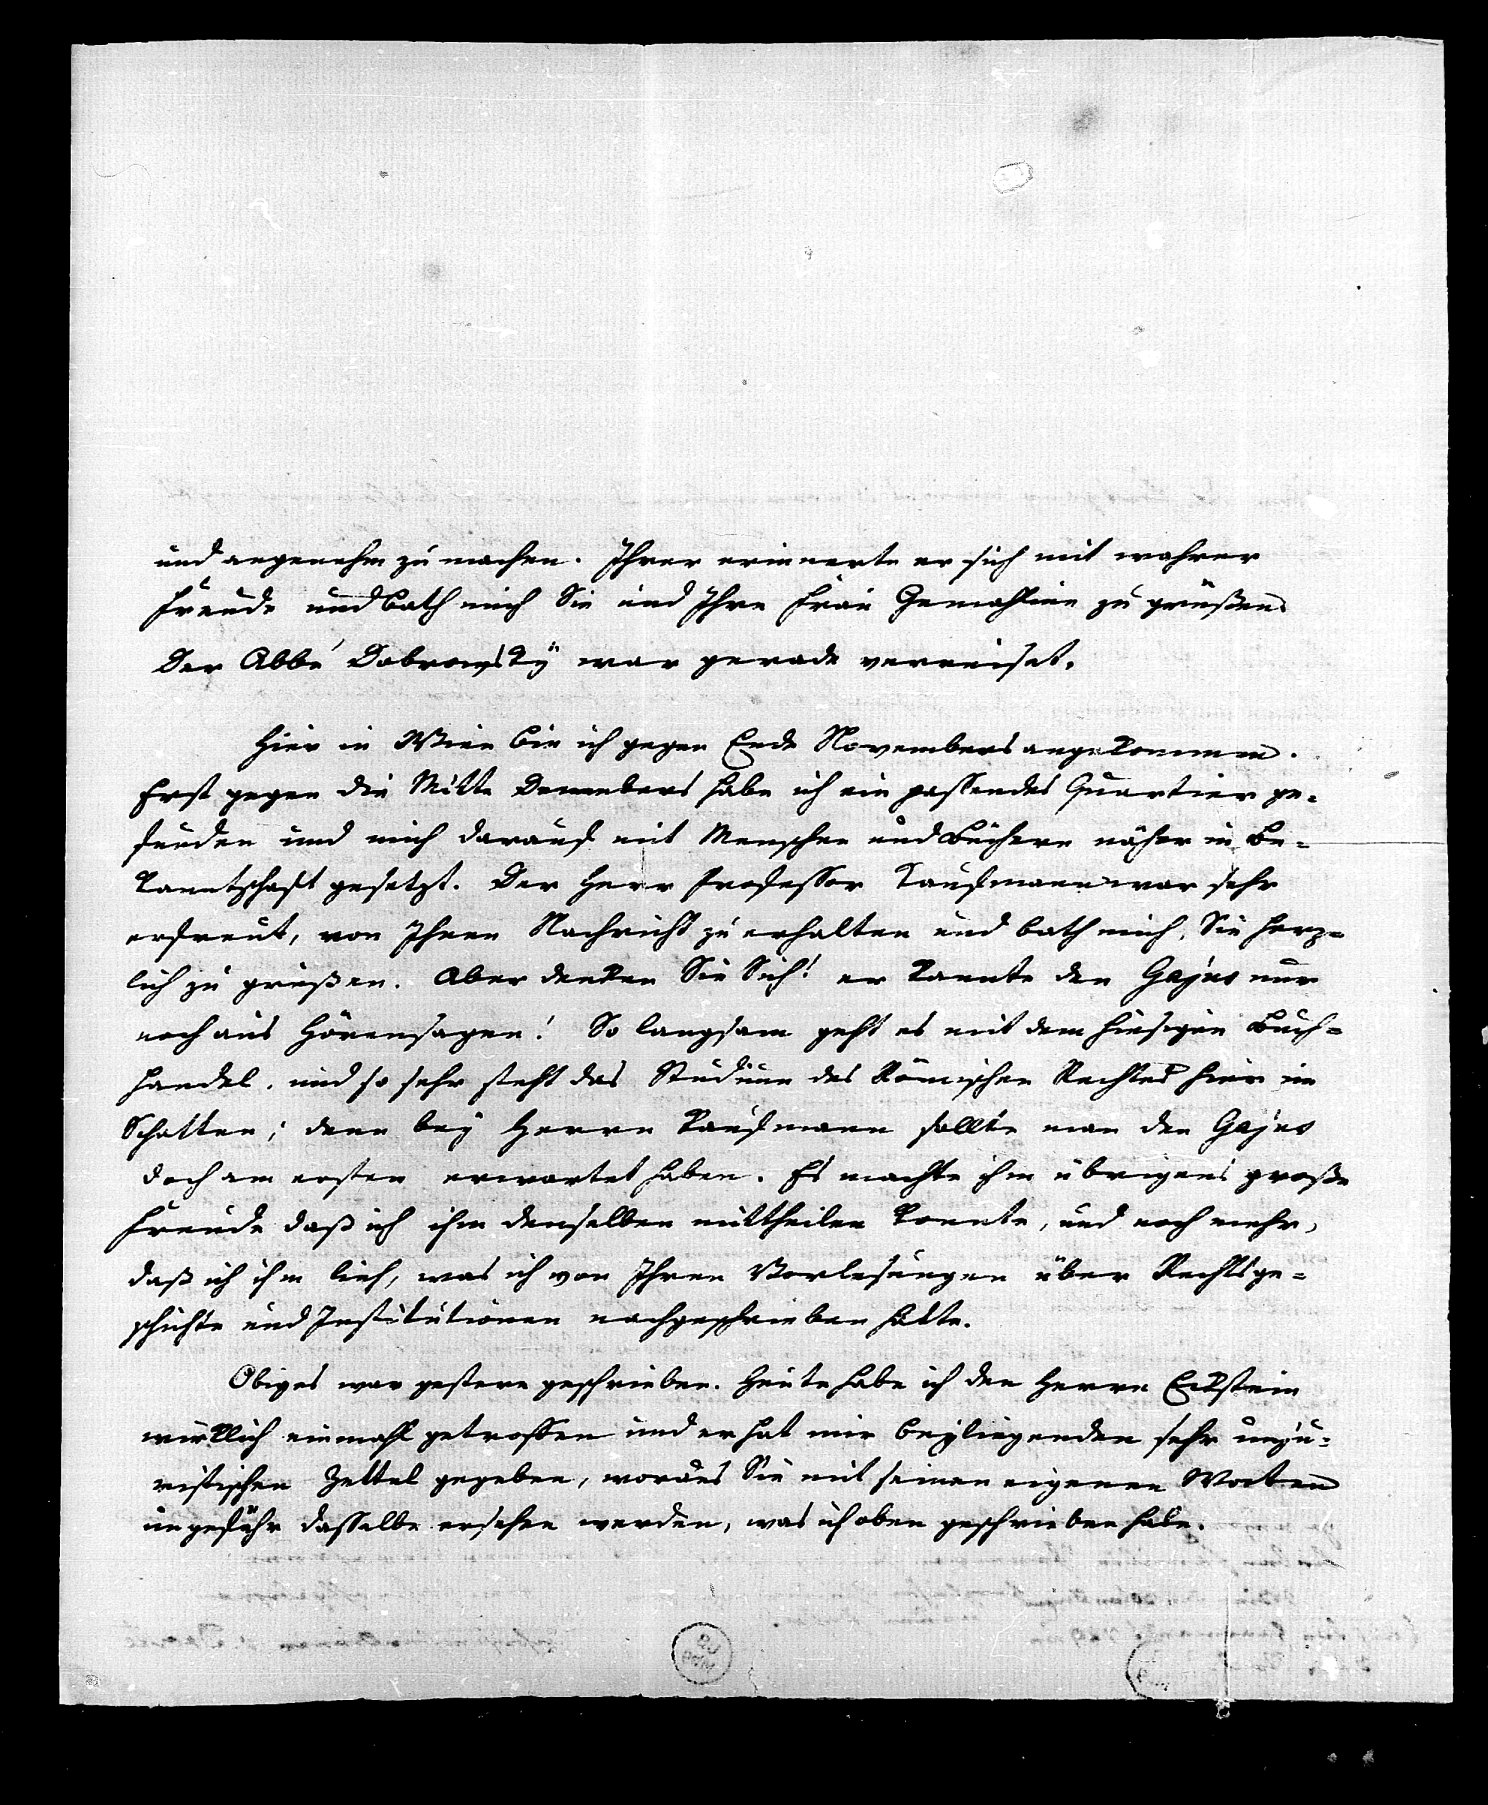 und angenehm zu machen. Ihrer erinnerte er sich mit wahrer
Freude und bath mich Sie und Ihre Frau Gemahlinn zu grüßen.
Der Abbé Dobrowsky war gerade verreiset.
Hier in Wien bin ich gegen Ende Novembers angekommen.
Erst gegen die Mitte Decembers habe ich ein passendes Quartier ge-
funden und mich darauf mit Menschen und Büchern näher in Be-
kanntschaft gesetzt. Der Herr Professor Kaufmann war sehr
erfreut, von Ihnen Nachricht zu erhalten und bath mich, Sie herz-
lich zu grüßen. Aber denken Sie Sich! er kannte den Gajus nur
noch aus Hörensagen! So langsam geht es mit dem hiesigen Buch-
handel, und so sehr steht das Studium des Römischen Rechtes hier im
Schatten; denn bey Herrn Kaufmann sollte man den Gajus
doch am ersten erwartet haben. Es machte ihm übrigens große
Freude daß ich ihm denselben mittheilen konnte, und noch mehr,
daß ich ihm lieh, was ich von Ihren Vorlesungen über Rechtsge-
schichte und Institutionen nachgeschrieben hatte.
Obiges war gestern geschrieben. Heute habe ich den Herrn Eckstein
wirklich einmahl getroffen und er hat mir beyliegenden sehr unju-
ristischen Zettel gegeben, woraus Sie mit seinen eigenen Worten
ungefähr dasselbe ersehen werden, was ich oben geschrieben habe.